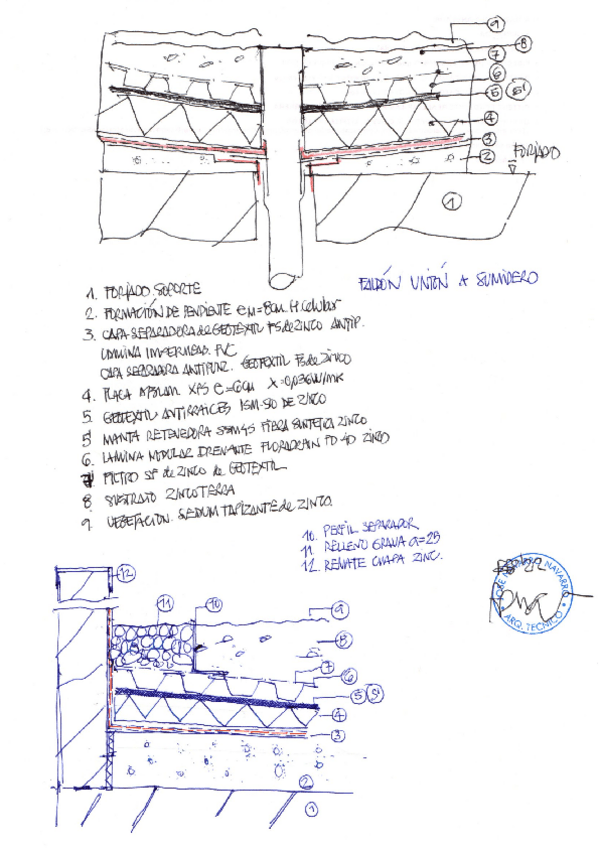 9
8
7
6
5 5'
4
3
2
FORJADO
1
FALDÓN UNIÓN A SUMIDERO
1. FORJADO SOPORTE
2. FORMACIÓN DE PENDIENTE em=8cm. H. celular
3. CAPA SEPARADORA de GEOTEXTIL PS de ZINCO ANTIP.
LAMINA IMPERMEAB. PVC
CAPA SEPARADORA ANTIPUNZ. GEOTEXTIL PS de ZINCO
4. PLACA XPS e=6cm λ=0,036W/mK
5. GEOTEXTIL ANTIRRAICES DE ZINCO
5' MANTA RETENEDORA SSM45 FIBRA SINTETICA ZINCO
6. LAMINA NODULAR DRENANTE FLORADRAIN FD 40 ZINCO
7 FILTRO SF de ZINCO de GEOTEXTIL
8 SUSTRATO ZINCOTERRA
9. VEGETACION. SEDUM TAPIZANTE de ZINCO.
10. PERFIL SEPARADOR
11. RELLENO GRAVA a=25
12. REMATE CHAPA ZINC.
NAVARRO
ARQ. TECNICO
12
11
10
9
8
7
6
5 5'
4
3
2
1